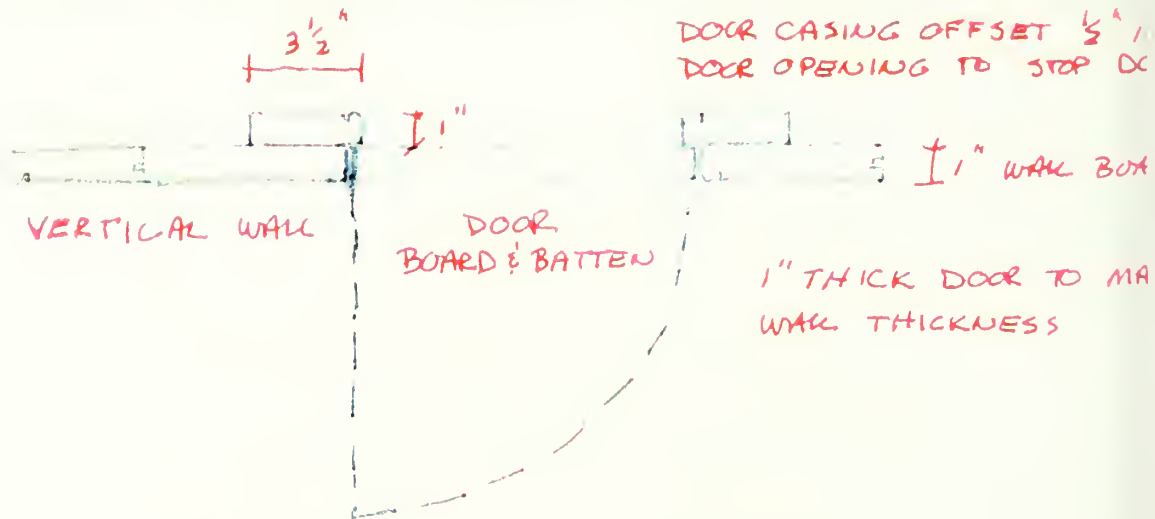 3 1/2"
DOOR CASING OFFSET 1/2"
DOOR OPENING TO STOP
1"
1" WALL
VERTICAL WALL
DOOR
BOARD & BATTEN
1" THICK DOOR TO
WALL THICKNESS